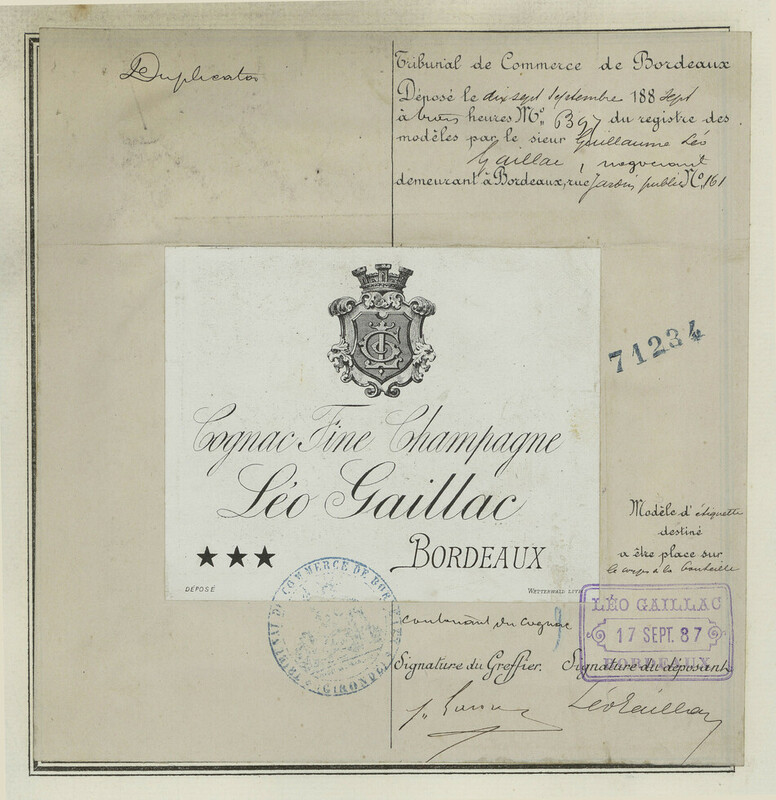 Duplicata
Tribunal de Commerce de Bordeaux
Déposé le dix sept Septembre 188 Sept
à trois heures No. 6397 du registre des
modèles par le sieur Guillaume Léo
Gaillac, négociant
demeurant à Bordeaux, rue Jardin public No. 161
71234
Cognac Fine Champagne
Léo Gaillac
★★★ BORDEAUX
DÉPOSÉ
WETTERWALD LITH
Modèle d'étiquette
destiné
a être place sur
le corps de la bouteille
contenant du Cognac
TRIBUNAL DE COMMERCE DE BORDEAUX
GIRONDE
LÉO GAILLAC
17 SEPT. 87
BORDEAUX
Signature du Greffier. Signature du déposant,
Léo Gaillac